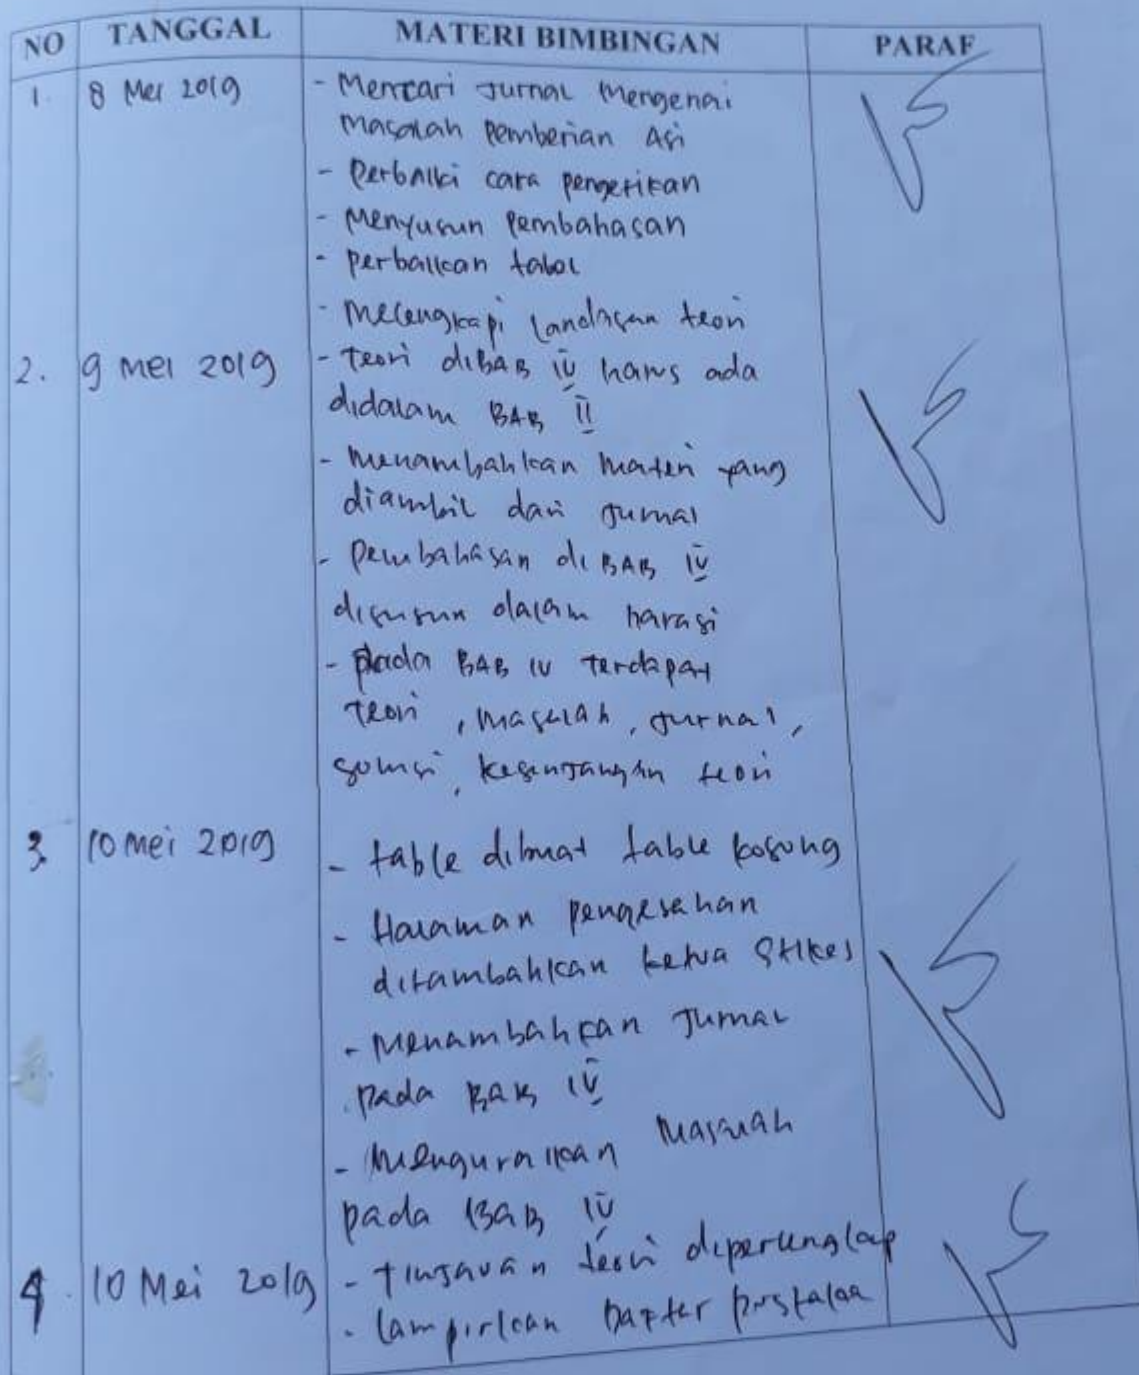 NO TANGGAL MATERI BIMBINGAN PARAF
1. 8 Mei 2019 - Mencari Jurnal Mengenai
Masalah Pemberian Asi
- Perbaiki cara pengetikan
- Menyusun Pembahasan
- perbaikan tabel
- Melengkapi landasan teori
2. 9 Mei 2019 - Teori diBAB IV harus ada
didalam BAB II
- Menambahkan Materi yang
diambil dari Jurnal
- Pembahasan di BAB IV
disusun dalam narasi
- pada BAB IV terdapat
teori, masalah, jurnal,
solusi, kesenjangan teori
3. 10 Mei 2019 - table dibuat table kosong
- Halaman pengesahan
ditambahkan ketua Stikes
- Menambahkan Jurnal
pada BAB IV
- Menguraikan Masalah
pada BAB IV
4. 10 Mei 2019 - tinjauan teori diperlengkap
- lampirkan Dafter pustakaa